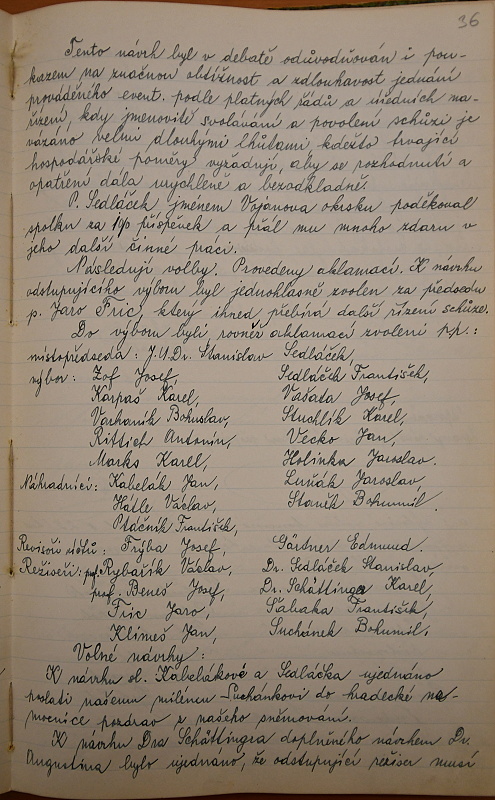 36
Tento návrh byl v debatě odůvodňován i pou-
kazem na značnou obtížnost a zdlouhavost jednání
prováděného event. podle platných řádů a úředních na-
řízení, kdy jmenovitě svolávání a povolení schůzí je
vázáno velmi dlouhými lhůtami, kdežto trvající
hospodářské poměry vyžadují, aby se rozhodnutí a
opatření dála urychleně a bezodkladně.
P. Sedláček jménem Vojanova okrsku poděkoval
spolku za příspěvek a přál mu mnoho zdaru v
jeho další činné práci.
Následují volby. Provedeny aklamací. K návrhu
odstupujícího výboru byl jednohlasně zvolen za předsedu
p. Jaro Fric, který ihned přebírá další řízení schůze.
Do výboru byli rovněž aklamací zvoleni p.p.:
místopředseda: J.U.Dr. Stanislav Sedláček,
výbor: Zof Josef, Sedláček František,
Karpaš Karel, Vašata Josef,
Vachaník Bohuslav, Stuchlík Karel,
Rittich Antonín, Vecko Jan,
Marks Karel, Holinka Jaroslav.
Náhradníci: Kabelák Jan, Luňák Jaroslav,
Hátle Václav, Staněk Bohumil.
Ptáčník František,
Revisoři účtů: Frýba Josef, Gärtner Edmund.
Režiseři: prof. Rybařík Václav, Dr. Sedláček Stanislav,
prof. Beneš Josef, Dr. Schättinger Karel,
Fric Jaro, Sabaka František,
Klimeš Jan, Suchánek Bohumil.
Volné návrhy:
K návrhu sl. Kabelákové a Sedláčka ujednáno
poslati našemu milému Suchánkovi do hradecké ne-
mocnice pozdrav z našeho sněmování.
K návrhu Dra Schättingra doplněného návrhem Dr.
Augustina bylo ujednáno, že odstupující režiser musí